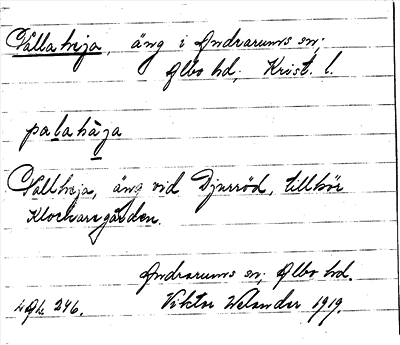 Vallaheja, äng i Andrarums sn;
Albo hd; Krist. l.
palahäja
Vallheja, äng vid Djurröd, tillhör
Klockaregården.
Andrarums sn; Albo hd.
Viktor Welander 1919.
246.